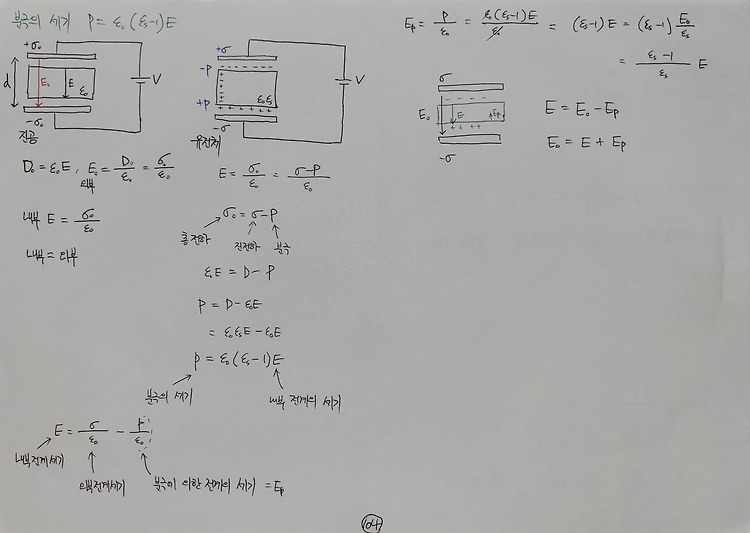 분극의 세기 P = ε₀(εs-1)E
+σ₀
d
E₀
E
ε₀
V
-σ₀
진공
D₀ = ε₀E, E₀ = D₀/ε₀ = σ₀/ε₀
외부
내부 E = σ₀/ε₀
내부 = 외부
+σ
-P
+P
ε₀εs
V
-σ
유전체
E = σ₀/ε₀ = σ-P/ε₀
σ₀ = σ-P
총전하
진전하
분극
ε₀E = D - P
P = D - ε₀E
= ε₀εsE - ε₀E
P = ε₀(εs-1)E
분극의 세기
내부 전계의 세기
E = σ/ε₀ - P/ε₀
내부전계세기
외부전계세기
분극에 의한 전계의 세기 = Ep
Ep = P/ε₀ = ε₀(εs-1)E/ε₀ = (εs-1)E = (εs-1) E₀/εs
= εs-1/εs E
σ
E₀
E
Ep
-σ
E = E₀ - Ep
E₀ = E + Ep
104